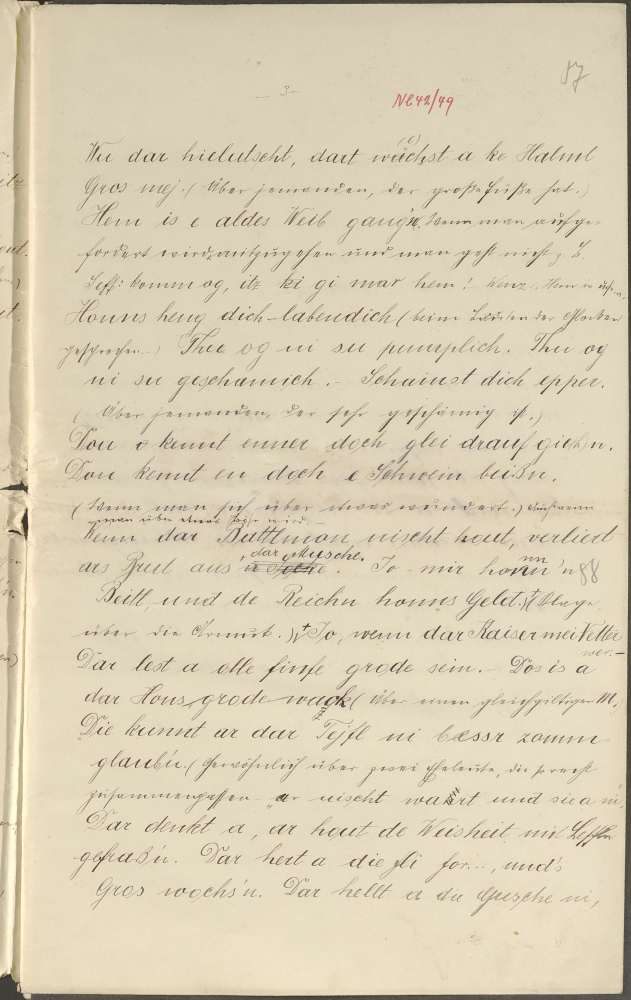 87
- 3 -
NC42/49
Wu dar hielutscht, dart wächst a ke Halml
Gros mej. (Über jemanden, der große Füße hat.)
Hem is e aldes Weib gang'n. Wenn man aufge-
fordert wird, mitzugehen und man geht nicht z. B.
Seff: komm og, itz gi mar hem! Wenz.: Hem is
Honns heng dich labendich (beim der Glocken
gesprochen.) Thu og ni su pumplich. Thu og
ni su geschamich. - Schainst dich epper.
(Über jemanden, der sehr geschämig ist.)
Dou kennt enner doch glei drauf giehn.
Dou kennt en doch e Schwein beißn.
(Wenn man sich über etwas wundert.)
man über etwas wird.
Wenn dar Battlmon nischt hout, verliert
ars Brut aus dar Mutsche. Jo mir honn 'n
88
Beitl, und de Reichn honns Geld. (Klage
über die Armut.) Jo, wenn dar Kaiser mei Vetter
wer. -
Dar lest a olle finfe grode sein. - Dos is a
dar Hons grode wack (Über einen gleichgiltigen M.)
Die kunnt ar dar Tejfl ni bessr zomm
glaubn. (Gewöhnlich über zwei Eheleute, die so recht
zusammenpassen - ar nischt wart und sie a ni,
Dar denkt a, ar hout de Weisheit mit Leffln
gefraß'n. Dar hert a die Fli for..., und's
Gros wochs'n. Dar hellt a die Gusche ni,